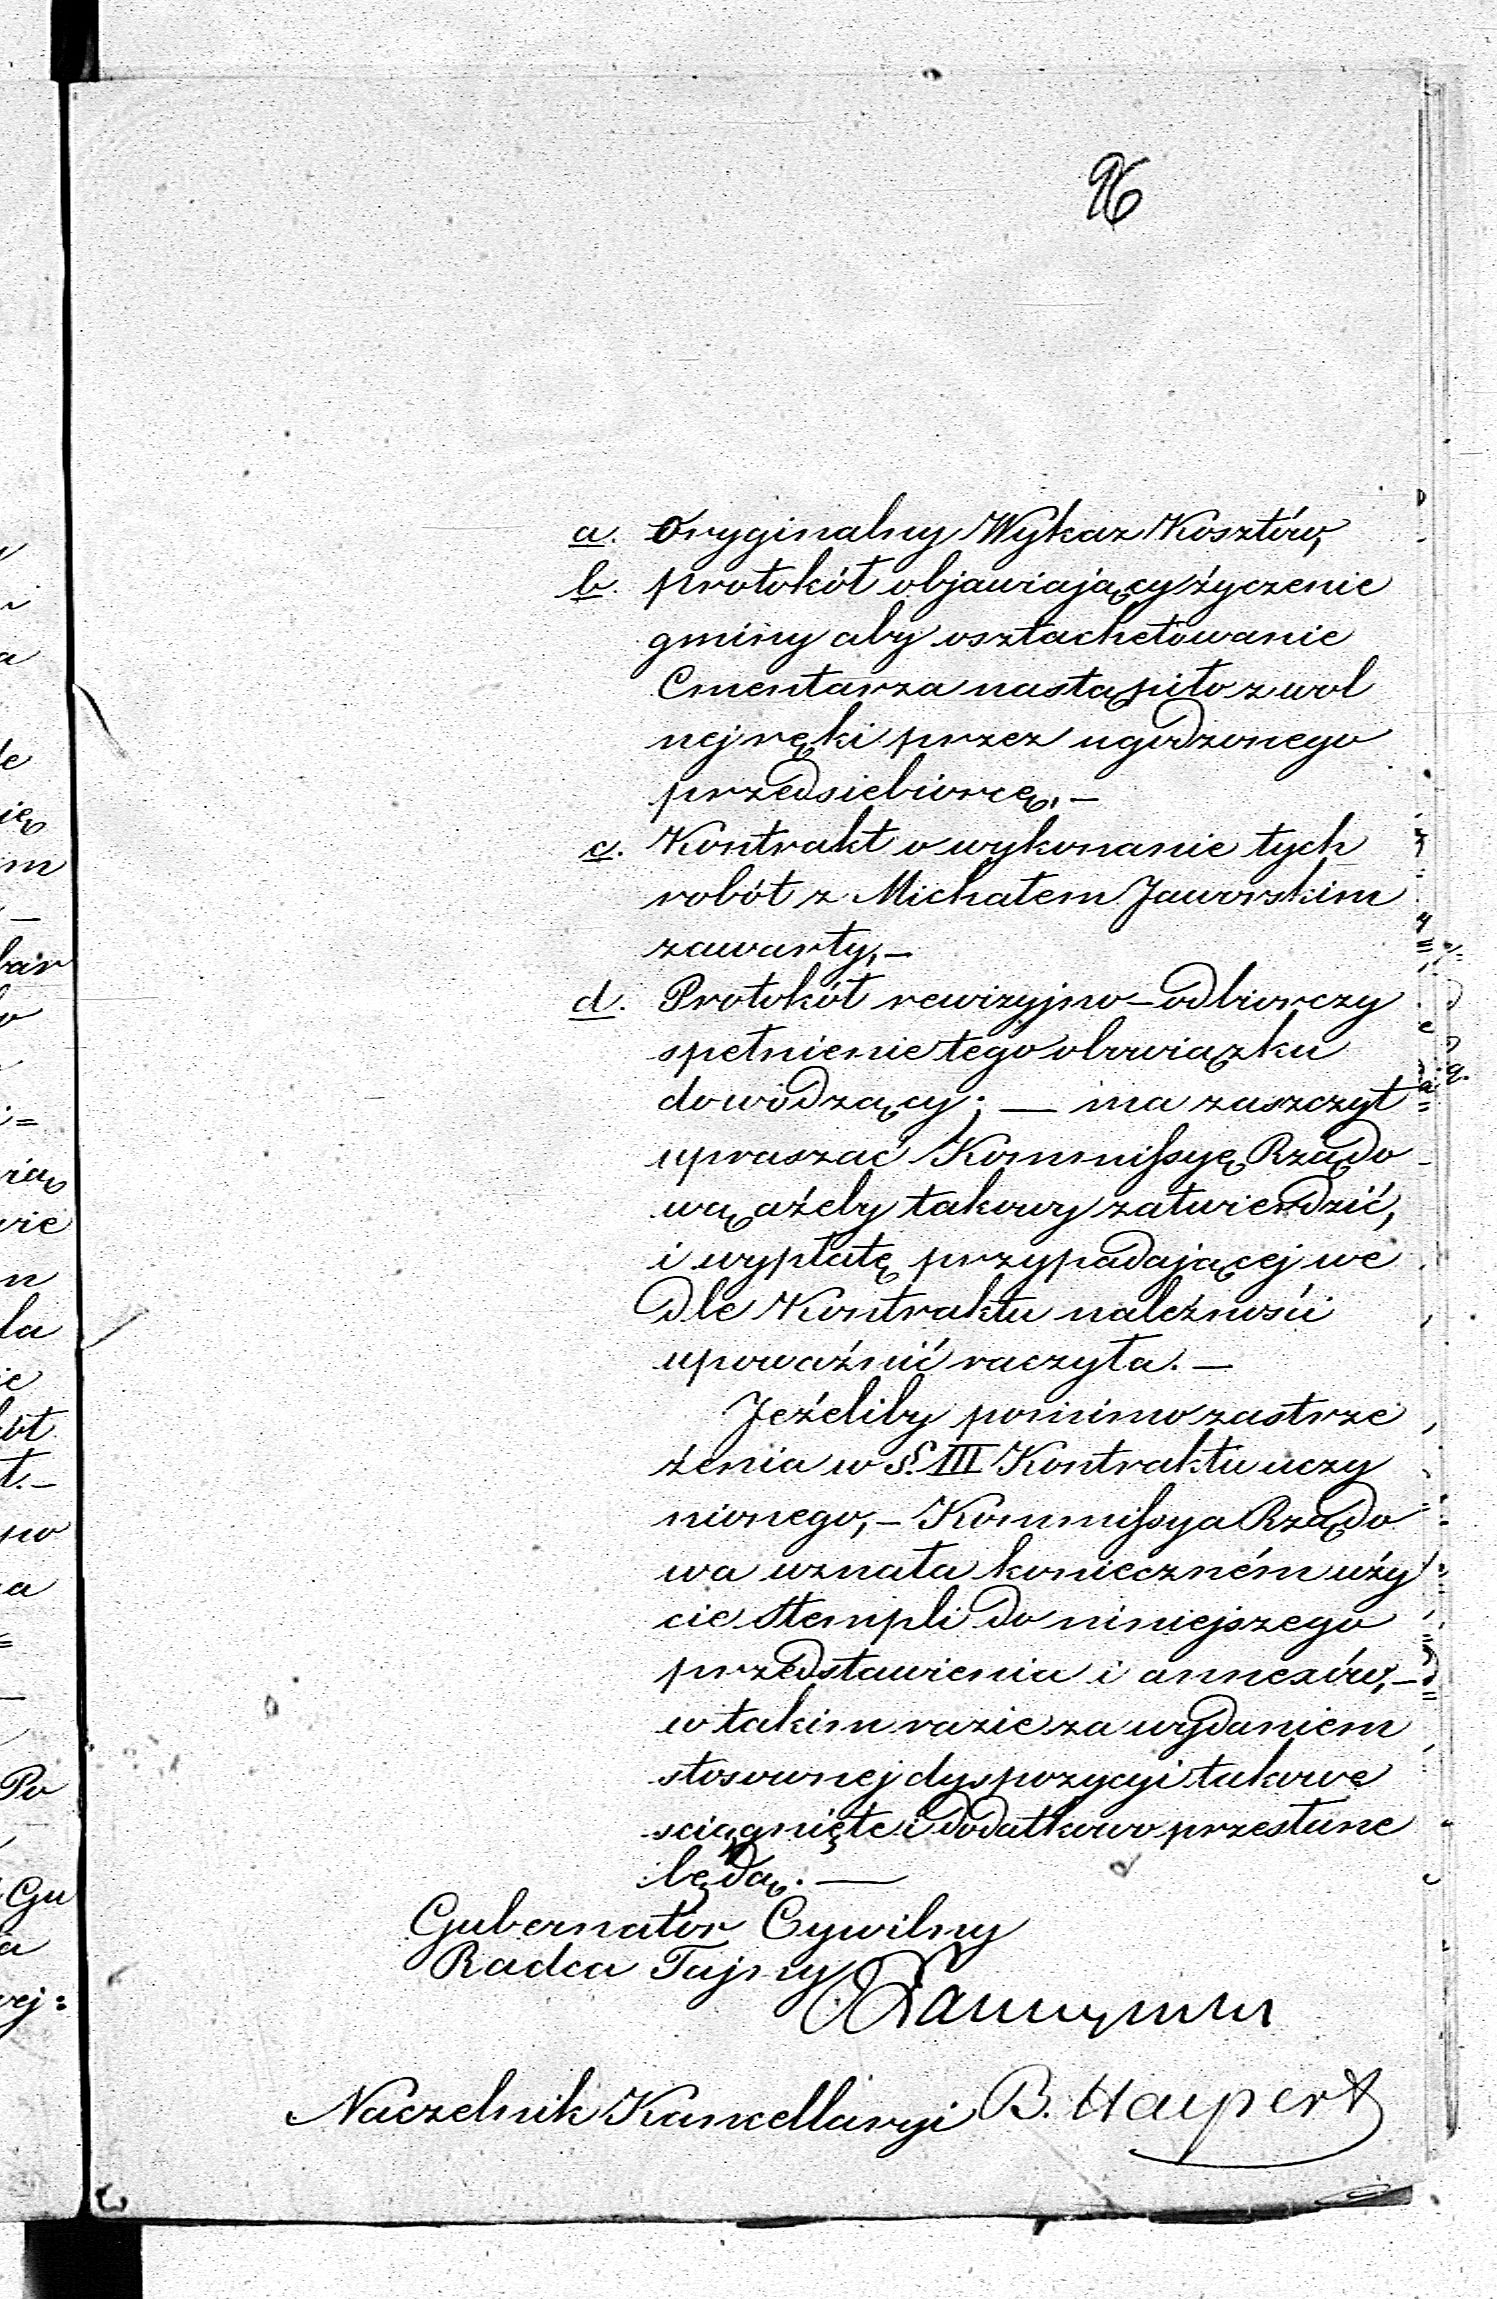 96
a. Oryginalny Wykaz Kosztów,
b. protokół objawiający życzenie
gminy aby osztachetowanie
Cmentarza nastąpiło z wol
nej ręki przez ugodzonego
przedsiebiorcę, —
c. Kontrakt o wykonanie tych
robót z Michałem Jaworskim
zawarty, —
d. Protokół rewizyjno-odbiorczy
spełnienie tego obowiązku
dowodzący; — ma zaszczyt
upraszać Kommissyę Rządo
wą, ażeby takowy zatwierdzić,
i wypłatę przypadającej we
dle Kontraktu należności
upoważnić raczyła. —
Jeżeliby pomimo zastrze
żenia w §. III Kontraktu uczy
nionego, — Kommissya Rządo
wa uznała konieczném uży
cie stempli do niniejszego
przedstawienia i annexów, —
w takim razie za wydaniem
stosownej dyspozycyi takowe
sciągnięte i dodatkowo przesłane
będą. —
Gubernator Cywilny
Radca Tajny
Naczelnik Kancellaryi B. Halpert